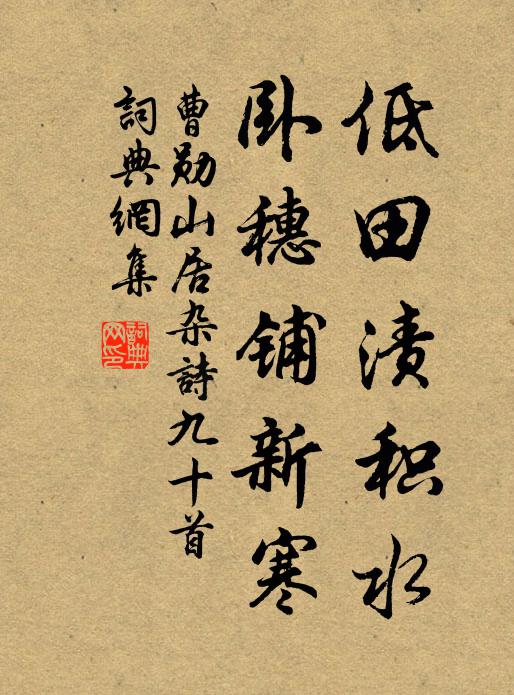 低田渍积水
卧穗铺新寒
曹勋山居杂詩九十首
詞典網集
詞典网印